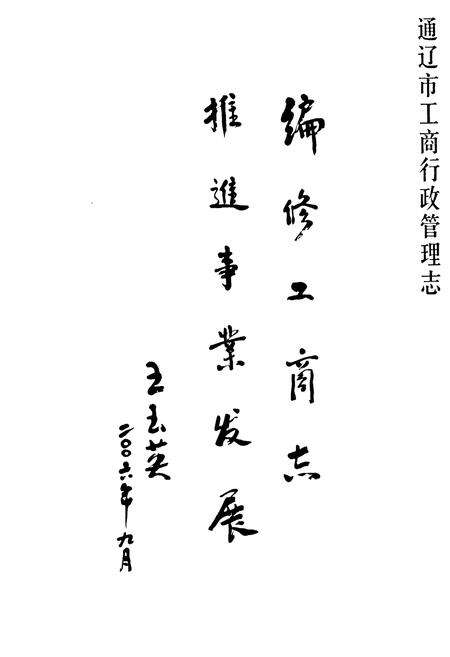 通辽市工商行政管理志
编修工商志
推進事业发展
王玉英
二〇〇六年九月